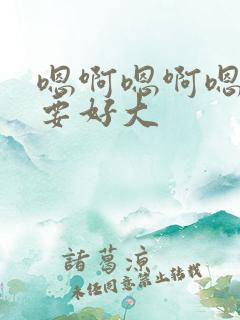 嗯啊嗯啊嗯
要好大
諸葛凉
未经同意禁止转载